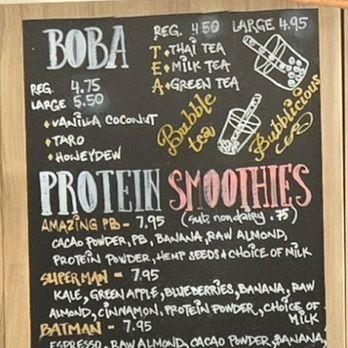 BOBA
REG. 4.75
LARGE 5.50
VANILLA COCONUT
TARO
HONEYDEW
REG. 4.50 LARGE 4.95
TEA
THAI TEA
MILK TEA
GREEN TEA
Bubble
tea
Bubblicious
PROTEIN SMOOTHIES
AMAZING PB - 7.95 (sub nondairy .75)
CACAO POWDER, PB, BANANA, RAW ALMOND,
PROTEIN POWDER, HEMP SEEDS & CHOICE OF MILK
SUPERMAN - 7.95
KALE, GREEN APPLE, BLUEBERRIES, BANANA, RAW
ALMOND, CINNAMON, PROTEIN POWDER, CHOICE OF
MILK
BATMAN - 7.95
ESPRESSO, RAW ALMOND, CACAO POWDER, BANANA,